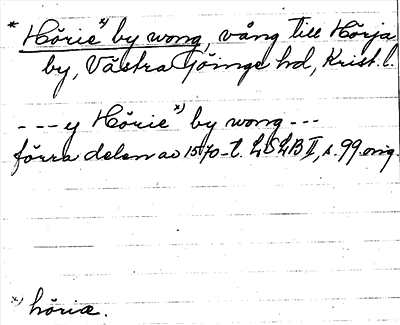 * Hörie*) by wong, vång till Hörja
by, Västra Göinge hd, Krist. l.
--- y Hörie*) by wong ---
förra delen av 1570-t. LSLB II, s. 99 orig.
*) höriæ.